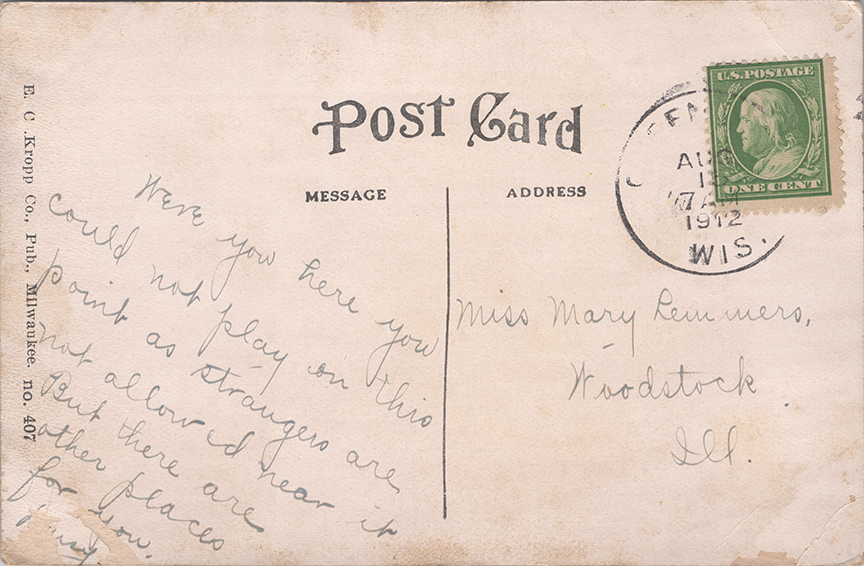 Post Card
MESSAGE
ADDRESS
E. C. Kropp Co., Pub., Milwaukee. no. 407
U.S. POSTAGE
ONE CENT
AUG
7 AM
1912
WIS.
Were you here you
could not play on this
point as strangers are
not allowed near it
But there are
other places
for you.
Miss Mary Lemmers,
Woodstock
Ill.